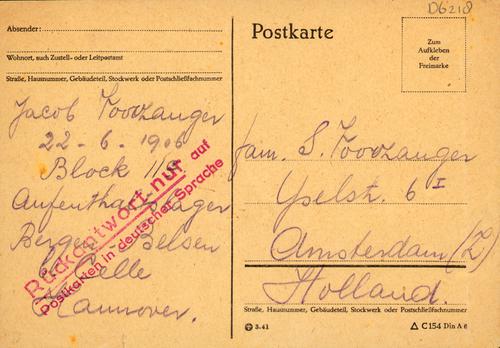 D6218
Absender:
Wohnort, auch Zustell- oder Leitpostamt
Straße, Hausnummer, Gebäudeteil, Stockwerk oder Postschließfachnummer
Jacob Voorzanger
22-6-1906
Block 11
Aufenthaltslager
Bergen Belsen
b/Celle
Hannover.
Rückantwort nur auf
Postkarten in deutscher Sprache
Postkarte
Zum
Aufkleben
der
Freimarke
fam. S. Voorzanger
Yselstr. 6 I
Amsterdam (Z)
Holland.
Straße, Hausnummer, Gebäudeteil, Stockwerk oder Postschließfachnummer
3.41
C 154 Din A 6